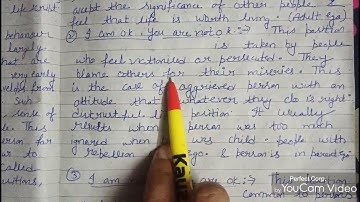 accept the significance of other people &
feel that life is worth living. (Adult ego)
② I am ok. You are not ok :→ This position
is taken by people
who feel victimised or persecuted. They
blame others for their miseries. This
is the case of aggrieved person with an
attitude that whatever they do is right.
distrustful life position. It usually
results when person was too much
ignored when was child. people with
rebellion ego. & person is in parent ego
③ I am are ok :→ This position
common to persons
life
behaviour
largely
that are
very early
develops from
sub
sense of
This
person
to
called
Perfect Corp.
YouCam Video